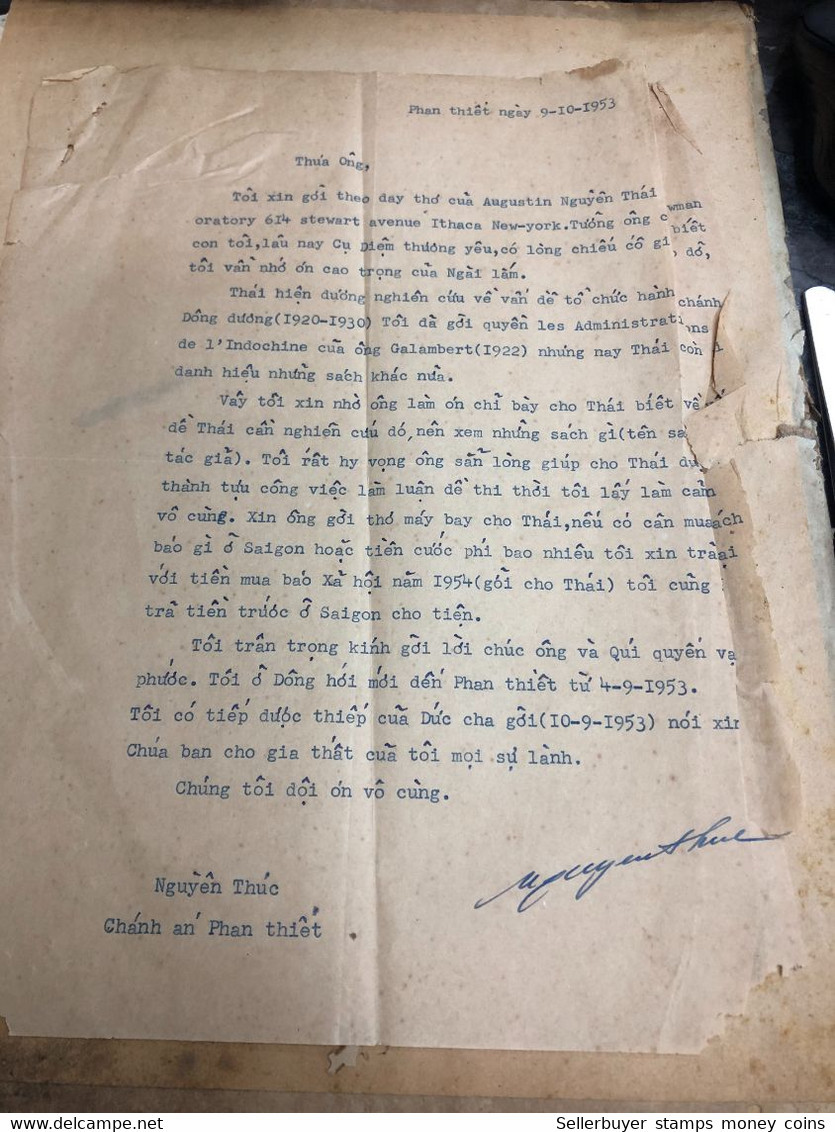 Phan thiết ngày 9-I0-I953
Thưa Ông,
Tôi xin gởi theo day thơ của Augustin Nguyên Thái
oratory 6I4 stewart avenue Ithaca New-york.Tưởng ông c wman
con tôi,lâu nay Cụ Diệm thương yêu,có lòng chiếu cố gi biết
tôi vẫn nhớ ơn cao trọng của Ngài lắm. , dở,
Thái hiện dương nghiên cứu về vấn dề tổ chức hành chánh
Dông dương(I920-I930) Tôi dã gởi quyền les Administrati ons
de l'Indochine của ông Galambert(I922) nhưng nay Thái còn
danh hiệu những sách khác nữa.
Vậy tôi xin nhờ ông làm ơn chỉ bày cho Thái biết về
dề Thái cần nghiên cứu dó,nên xem những sách gì(tên sá
tác giả). Tôi rất hy vọng ông sẵn lòng giúp cho Thái dư
thành tựu công việc làm luân dề thi thời tôi lấy làm cảm
vô cùng. Xin ông gởi thơ máy bay cho Thái,nếu có cần mua ách
báo gì ở Saigon hoặc tiền cước phí bao nhiêu tôi xin trả ại
với tiền mua báo Xã hội năm I954(gởi cho Thái) tôi cũng
trả tiền trước ở Saigon cho tiện.
Tôi trân trọng kính gởi lời chúc ông và Quí quyến vạ
phước. Tôi ở Dông hới mới dến Phan thiết từ 4-9-I953.
Tôi có tiếp dược thiếp của Dức cha gởi(I0-9-I953) nói xin
Chúa ban cho gia thất của tôi mọi sự lành.
Chúng tôi dội ơn vô cùng.
Nguyenthuc
Nguyễn Thúc
Chánh án Phan thiết
Sellerbuyer stamps money coins